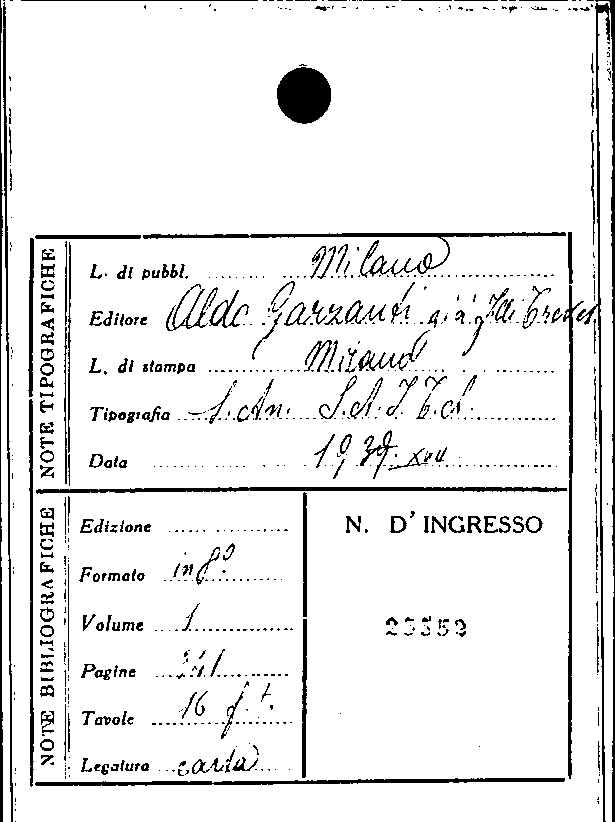 NOTE TIPOGRAFICHE
L. di pubbl. Milano
Editore Aldo Garzanti già
L. di stampa Milano
Tipografia S. An. S.A.I.T.A.
Data 1939. XVII
NOTE BIBLIOGRAFICHE
Edizione
Formato in 8º
Volume 1
Pagine 241
Tavole 16 f. t.
Legatura carta
N. D'INGRESSO
23552